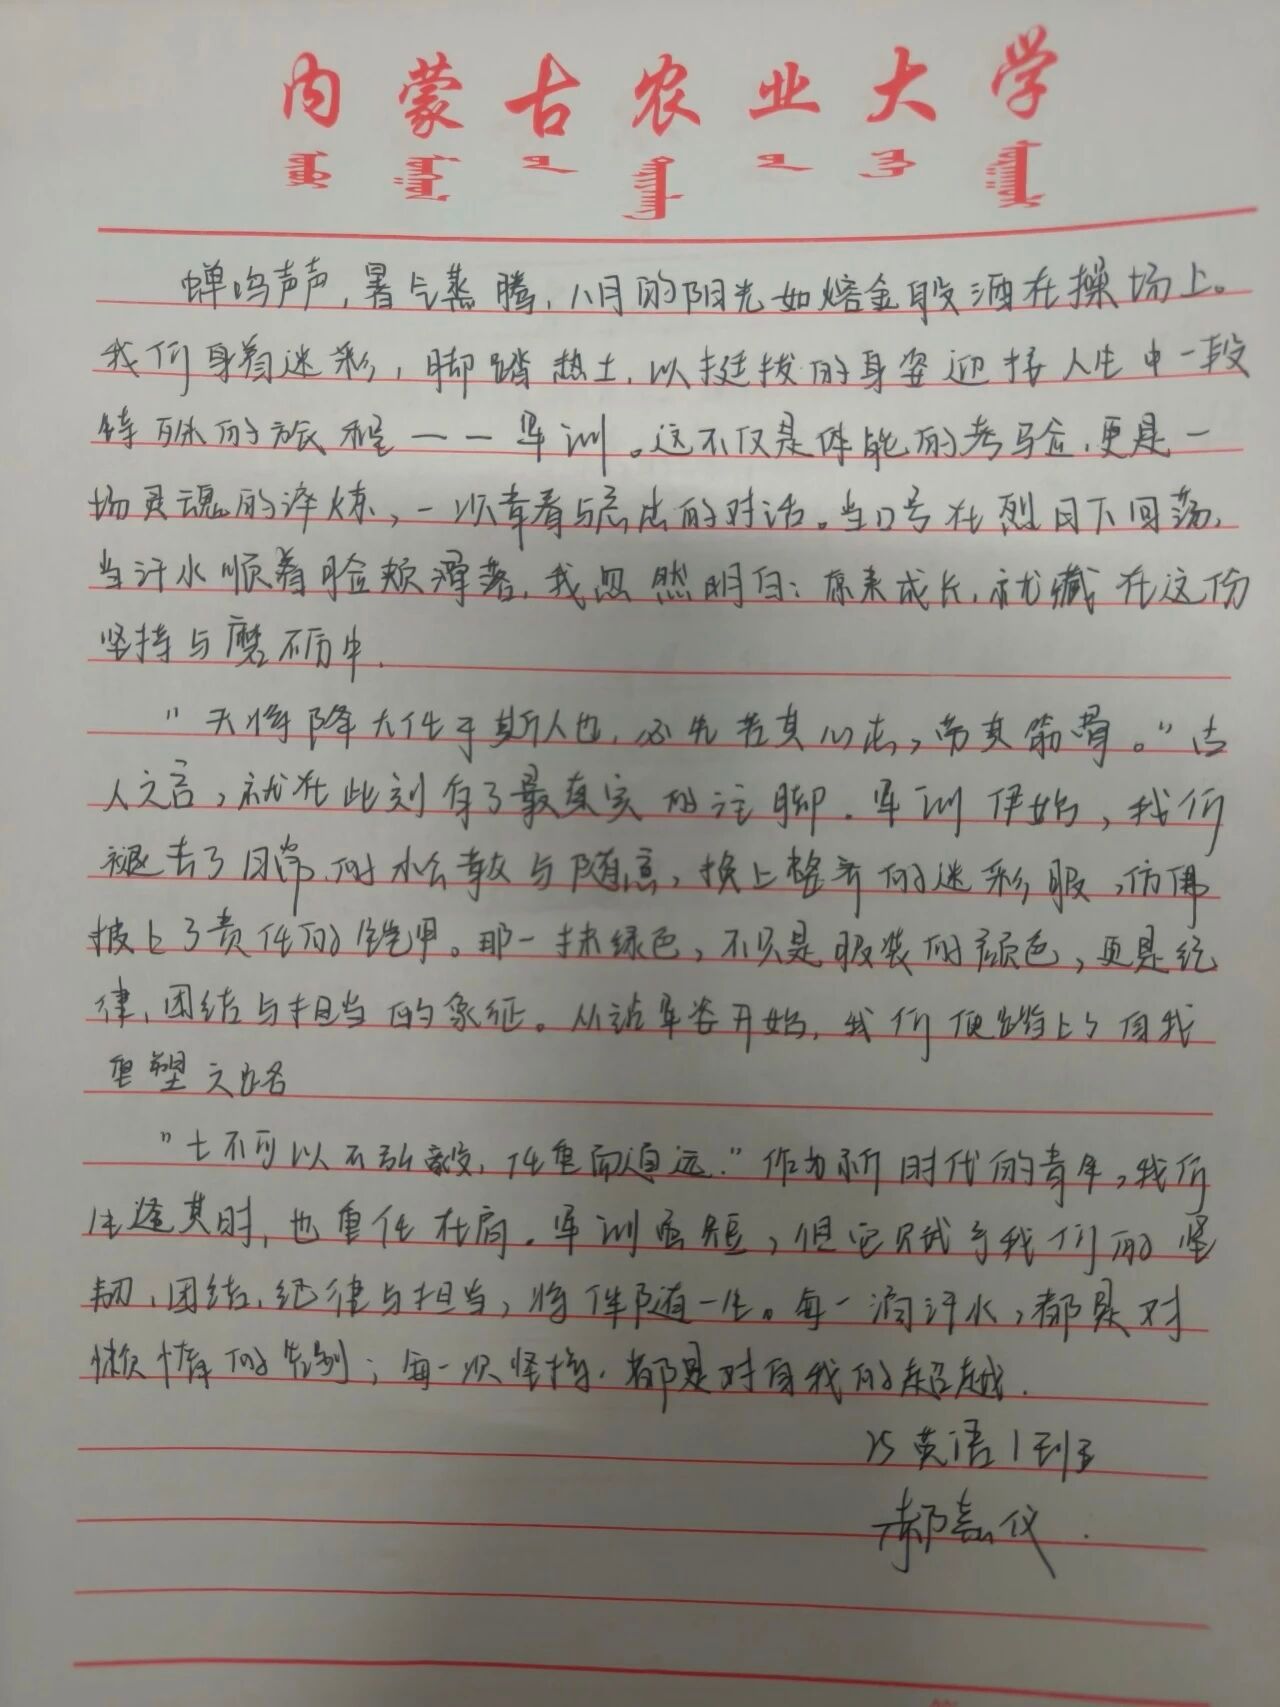 内蒙古农业大学
蝉鸣声声,暑气蒸腾,八月的阳光如熔金般洒在操场上。
我们身着迷彩,脚踏热土,以挺拔的身姿迎接人生中一段
特殊的旅程——军训。这不仅是体能的考验,更是一
场灵魂的淬炼,一次青春与意志的对话。当口号在烈日下回荡,
当汗水顺着脸颊滑落,我忽然明白:原来成长,就藏在这份
坚持与磨砺中.
"天将降大任于斯人也,必先苦其心志,劳其筋骨。"古
人之言,就在此刻有了最真实的注脚.军训伊始,我们
褪去了日常的松散与随意,换上整齐的迷彩服,仿佛
披上了责任的铠甲。那一抹绿色,不只是服装的颜色,更是纪
律、团结与担当的象征。从站军姿开始,我们便踏上了自我
重塑之路
"士不可以不弘毅,任重而道远."作为新时代的青年,我们
生逢其时,也重任在肩.军训虽短,但它赋予我们的坚
韧、团结、纪律与担当,将伴随一生。每一滴汗水,都是对
懒惰的告别;每一次坚持,都是对自我的超越.
25英语1班
郝嘉仪.